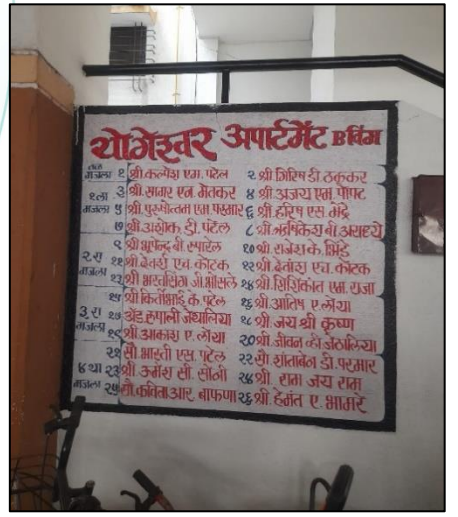 योगेश्वर अपार्टमेंट B विंग
तळ मजला १ श्री. कल्पेश एम. पटेल २ श्री गिरिष डी ठक्कर
१ला मजला ३ श्री. सागर एन. मेतकर ४ श्री. अजय एम. पोपट
५ श्री. पुरुषोत्तम एम. परमार ६ श्री. हरिष एस. भेद्रे
७ श्री. अशोक. डी. पटेल ८ श्री. ऋषिकेश बी.
२रा मजला ९ श्री. भूपेन्द्र बी. रुपारेल १० श्री. राजेश के. भिंडे
११ श्री. देवर्श एच. कोटक १२ श्री. देवांश एच. कोटक
१३ श्री भारतसिंग जी. भोसले १४ श्री शशिकांत एम. राजा
३रा मजला १५ श्री किर्तीभाई के. पटेल १६ श्री. आतिष ए. लोया
१७ अ‍ॅड. रुपाली जेथालिया १८ श्री. जय श्री कृष्ण
१९ श्री. आकाश ए. लोया २० श्री. जीवन व्ही जेठालिया
४था मजला २१ सौ. भारती एस. पटेल २२ सौ शांताबेन डी. परमार
२३ श्री. उमेश सी. सोनी २४ श्री. राम जय राम
२५ सौ. कविता आर. बाफणा २६ श्री. हेमंत ए. भामरे